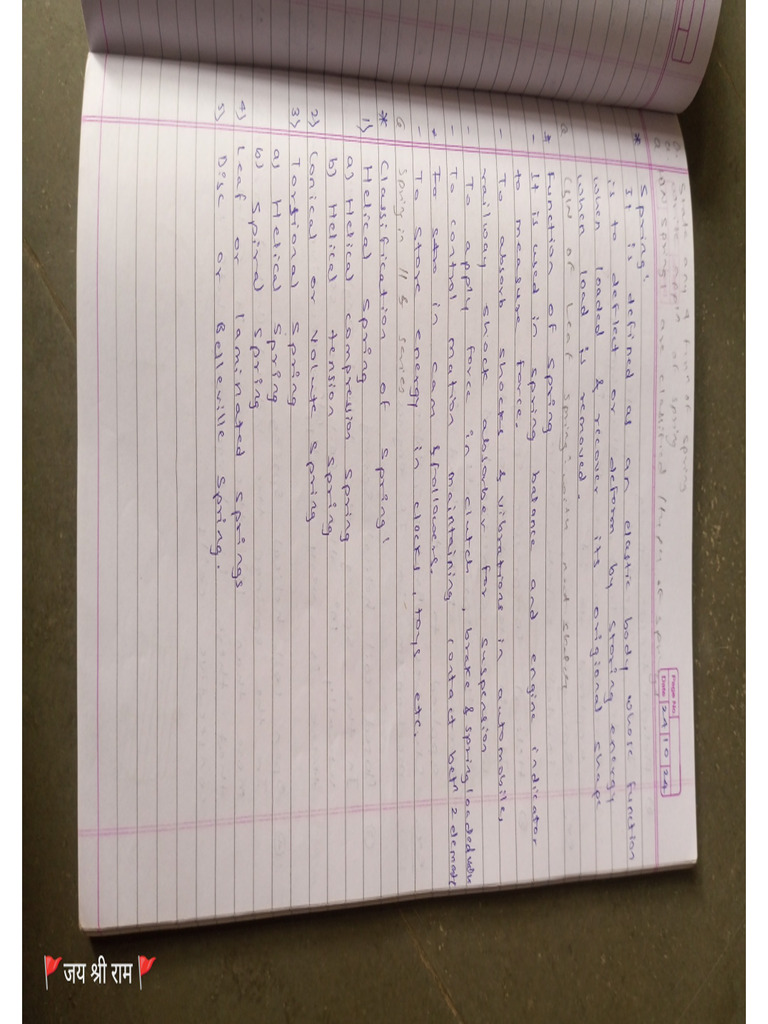 Page No.
Date 24 10 24
State any 4 func of spring
of spring
spring are classified
* Spring:
It is defined as an elastic body whose function
is to deflect or deform by storing energy
when loaded & recover its origional shape
when load is removed.
of Leaf spring with neat sketch
* Function of spring
- It is used in spring balance and engine indicator
to measure force.
- To absorb shocks & vibrations in automobile,
railway shock absorber for suspension
- To apply force in clutch, brake & spring loaded valve
- To control motion maintaining contact betn 2 elements
To in cam & followers.
- To store energy in clocks, toys etc.
Spring in || & series
* Classification of spring:
1) Helical Spring
a) Helical compression spring
b) Helical tension spring
2) Conical or Volute spring
3) Torsional spring
a) Helical spring
b) Spiral spring
4) Leaf or laminated springs
5) Disc or Belleville spring.
🚩जय श्री राम🚩